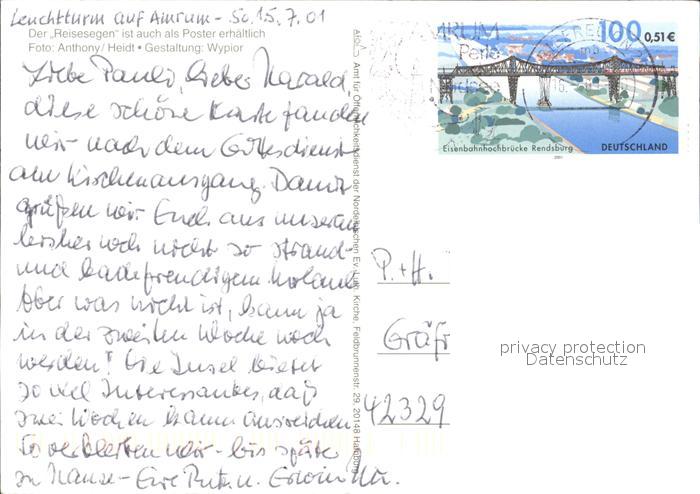 Leuchtturm auf Amrum - So. 15.7.01
Der „Reisesegen" ist auch als Poster erhältlich
Foto: Anthony / Heidt • Gestaltung: Wypior
Liebe Pauli, lieber Harald,
diese schöne Karte fanden
wir nach dem Gottesdienst
am Kirchenausgang. Damit
grüßen wir Euch aus unserem
bisher noch nicht so strand-
und badefreudigem Urlaub
Aber was nicht ist, kann ja
in der zweiten Woche noch
werden! Die Insel bietet
so viel Interessantes, daß
zwei Wochen kaum ausreichen
So verbleiben wir - bis später
zu Hause - Eure u. Erwin
Amt für Öffentlichkeitsdienst der Nordelbischen Ev.-Luth. Kirche, Feldbrunnenstr. 29, 20148 Hamburg
AMRUM
Perle
100 0,51 €
Eisenbahnhochbrücke Rendsburg
DEUTSCHLAND
2001
P. + H.
Gräfr
42329
privacy protection
Datenschutz